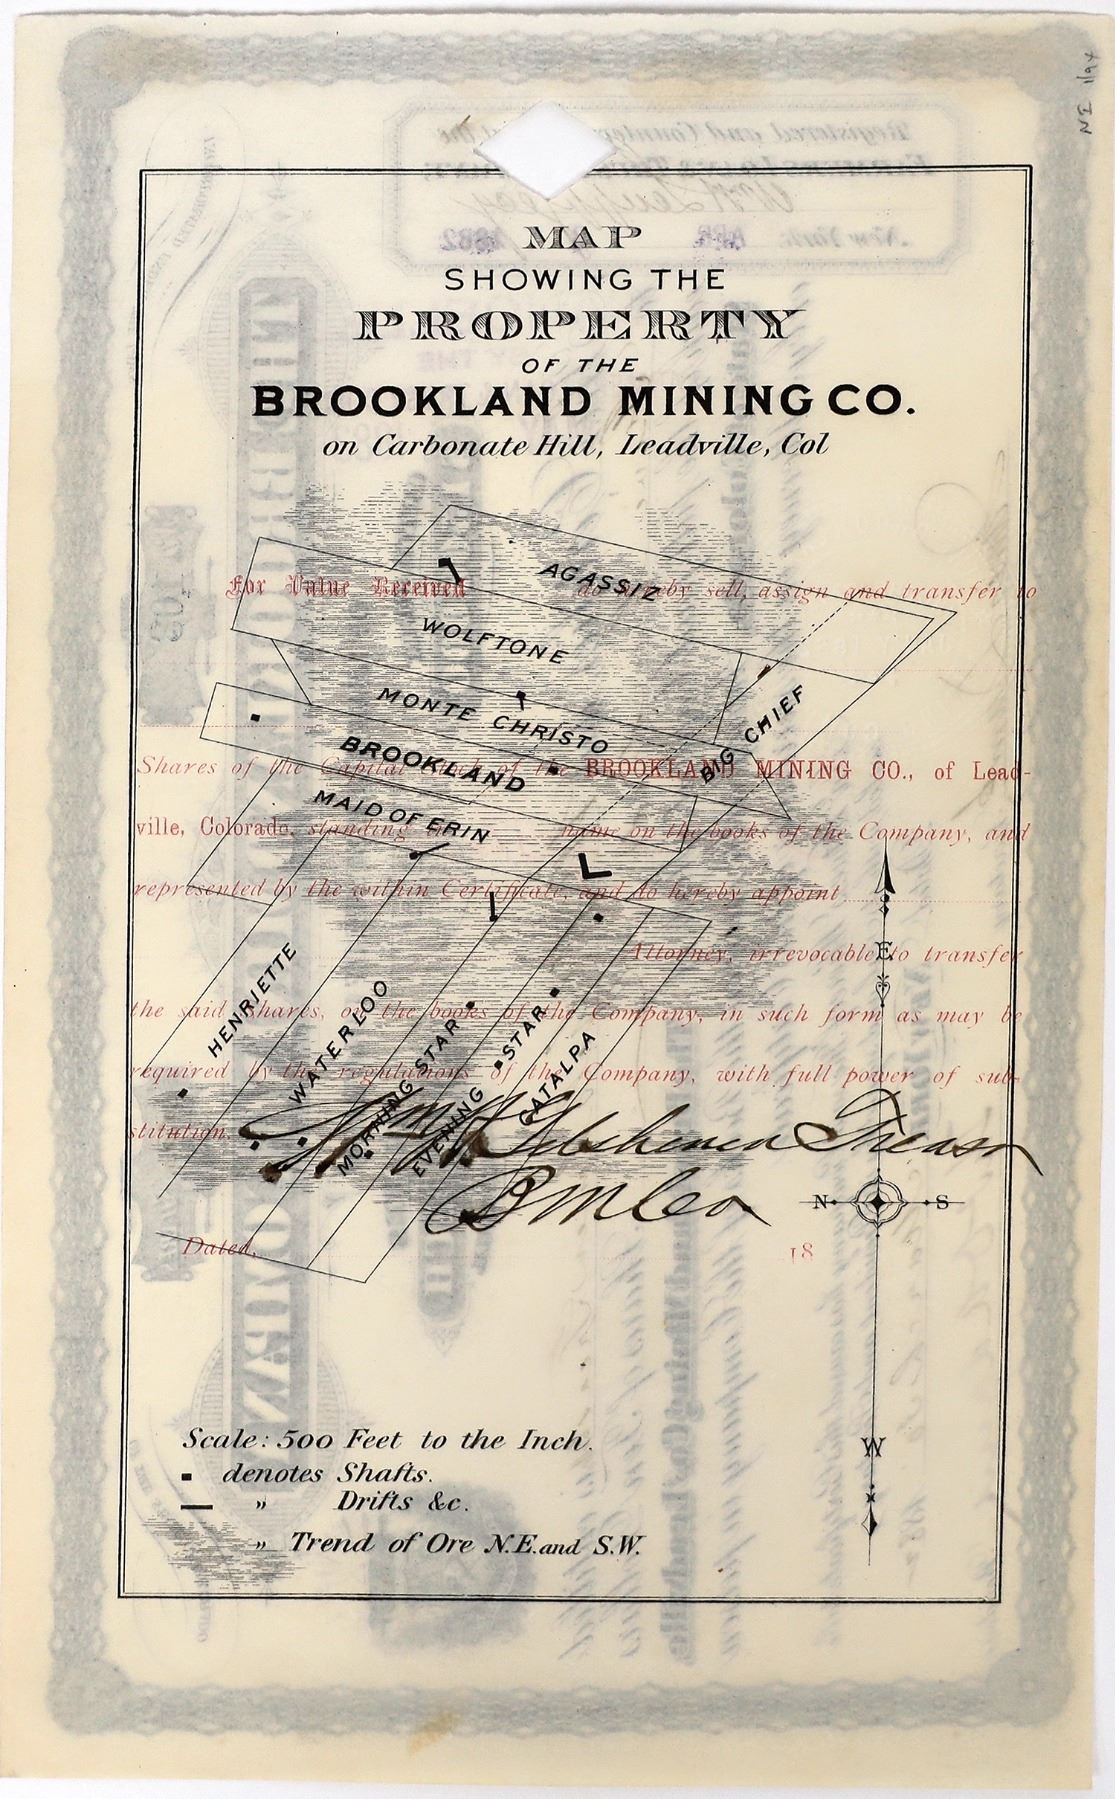 NE 1/94
MAP
SHOWING THE
PROPERTY
OF THE
BROOKLAND MINING CO.
on Carbonate Hill, Leadville, Col
AGASSIZ
For Value Received do hereby sell, assign and transfer to
WOLFTONE
MONTE CHRISTO
BIG CHIEF
BROOKLAND
Shares of the Capital Stock of the BROOKLAND MINING CO., of Lead-
MAID OF ERIN
ville, Colorado, standing in name on the books of the Company, and
represented by the within Certificate, and do hereby appoint
E
Attorney, irrevocable to transfer
HENRIETTE
WATERLOO
MORNING STAR
EVENING STAR
CATALPA
the said shares, on the books of the Company, in such form as may be
required by the regulations of the Company, with full power of sub-
stitution.
Treasr
B M Co
N S
Dated, 18
Scale: 500 Feet to the Inch.
denotes Shafts.
„ Drifts &c.
„ Trend of Ore N.E. and S.W.
W